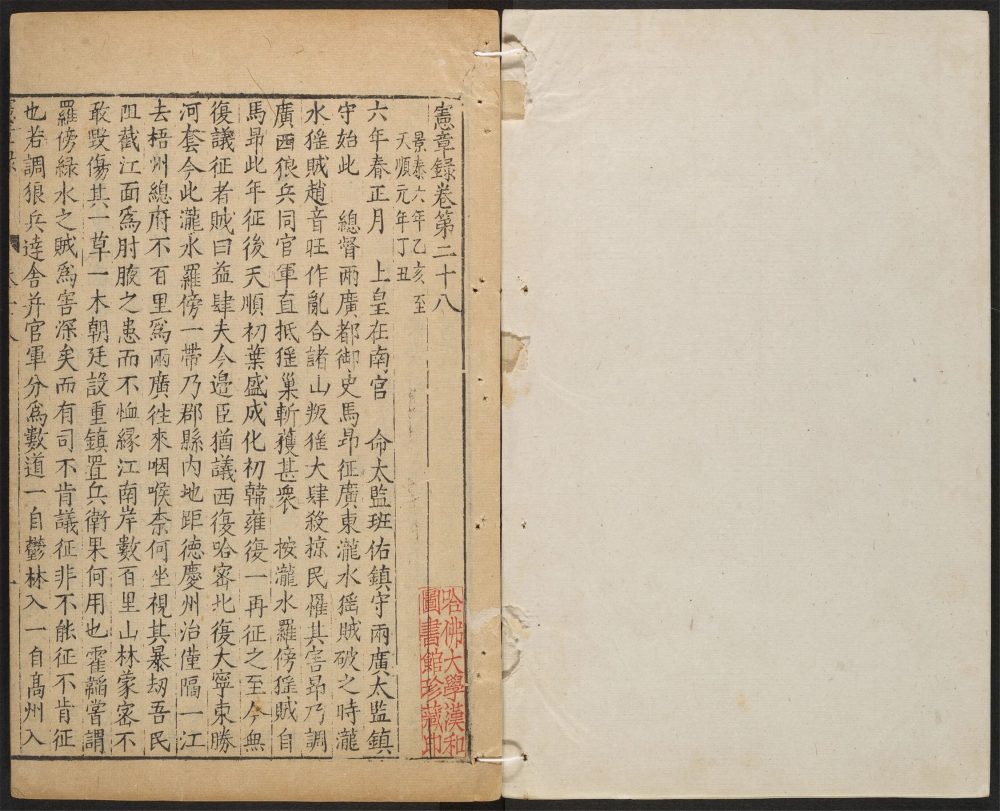 憲章錄卷第二十八
景泰六年乙亥至
天順元年丁丑
六年春正月 上皇在南宮 命太監班佑鎮守兩廣太監鎮
守始此 總督兩廣都御史馬昂征廣東瀧水猺賊破之時瀧
水猺賊趙音旺作亂合諸山叛猺大肆殺掠民懼其害昂乃調
廣西狼兵同官軍直抵猺巢斬獲甚衆 按瀧水羅傍猺賊自
馬昂此年征後天順初葉盛成化初韓雍復一再征之至今無
復議征者賊曰益肆夫今邊臣猶議西復哈密北復大寧東勝
河套今此瀧水羅傍一帶乃郡縣内地距德慶州治僅隔一江
去梧州總府不百里爲兩廣徃來咽喉柰何坐視其暴刼吾民
阻截江面爲肘腋之患而不恤緣江南岸數百里山林蒙密不
敢毀傷其一草一木朝廷設重鎮置兵衛果何用也霍韜嘗謂
羅傍緑水之賊爲害深矣而有司不肯議征非不能征不肯征
也若調狼兵達舍并官軍分爲數道一自鬱林入一自髙州入
哈佛大學漢和
圖書館珍藏印